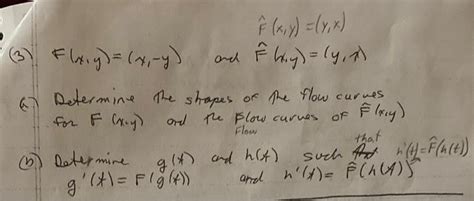 F̂(x,y) = (y,x)
(3) F(x,y) = (x,-y) and F̂(x,y) = (y,x)
(a) Determine the shapes of the flow curves
for F(x,y) and the flow curves of F̂(x,y)
Flow
(b) Determine g(t) and h(t) such that h'(t) = F̂(h(t))
g'(t) = F(g(t)) and h'(t) = F̂(h(t))